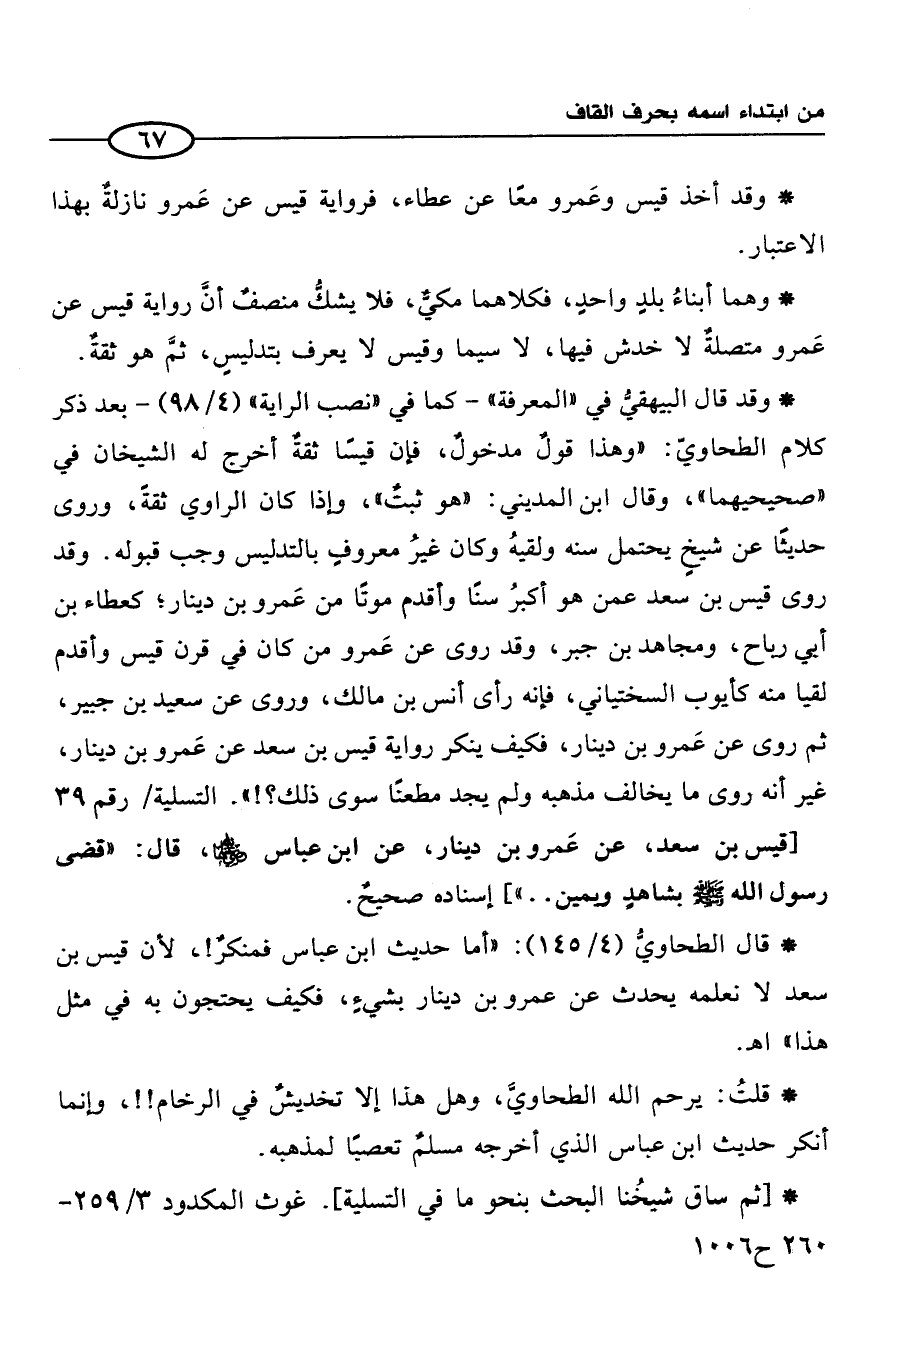 من ابتداء اسمه بحرف القاف
٦٧
* وقد أخذ قيس وعَمرو معًا عن عطاء، فرواية قيس عن عَمرو نازلةٌ بهذا
الاعتبار.
* وهما أبناءُ بلدٍ واحدٍ، فكلاهما مكيٌّ، فلا يشكُّ منصفٌ أنَّ رواية قيس عن
عَمرو متصلةٌ لا خدش فيها، لا سيما وقيس لا يعرف بتدليسٍ، ثمَّ هو ثقةٌ.
* وقد قال البيهقيُّ في «المعرفة» - كما في «نصب الراية» (٤/ ٩٨) - بعد ذكر
كلام الطحاويّ: «وهذا قولٌ مدخولٌ، فإن قيسًا ثقةٌ أخرج له الشيخان في
«صحيحيهما»، وقال ابن المديني: «هو ثبتٌ»، وإذا كان الراوي ثقةً، وروى
حديثًا عن شيخٍ يحتمل سنه ولقيهُ وكان غيرُ معروفٍ بالتدليس وجب قبوله. وقد
روى قيس بن سعد عمن هو أكبرُ سنًا وأقدم موتًا من عَمرو بن دينار؛ كعطاء بن
أبي رباح، ومجاهد بن جبر، وقد روى عن عَمرو من كان في قرن قيس وأقدم
لقيا منه كأيوب السختياني، فإنه رأى أنس بن مالك، وروى عن سعيد بن جبير،
ثم روى عن عَمرو بن دينار، فكيف ينكر رواية قيس بن سعد عن عَمرو بن دينار،
غير أنه روى ما يخالف مذهبه ولم يجد مطعنًا سوى ذلك؟!». التسلية/ رقم ٣٩
[قيس بن سعد، عن عَمرو بن دينار، عن ابن عباس ﵄، قال: «قضى
رسول الله ﷺ بشاهدٍ ويمين. . .»] إسناده صحيحٌ.
* قال الطحاويُّ (٤/ ١٤٥): «أما حديث ابن عباس فمنكرٌ!، لأن قيس بن
سعد لا نعلمه يحدث عن عمرو بن دينار بشيءٍ، فكيف يحتجون به في مثل
هذا» اهـ.
* قلتُ: يرحم الله الطحاويَّ، وهل هذا إلا تخديشٌ في الرخام!!، وإنما
أنكر حديث ابن عباس الذي أخرجه مسلمٌ تعصبًا لمذهبه.
* [ثم ساق شيخُنا البحث بنحو ما في التسلية]. غوث المكدود ٣/ ٢٥٩-
٢٦٠ ح١٠٠٦